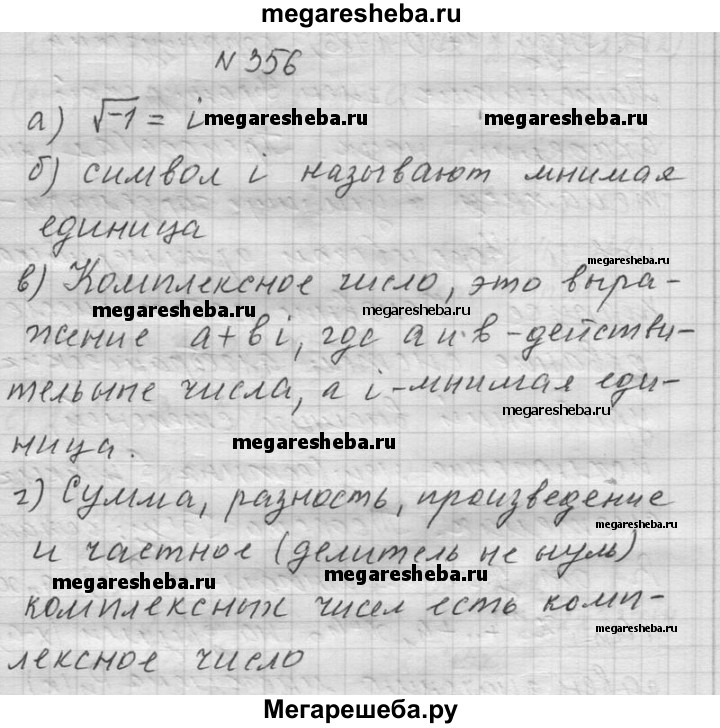 megaresheba.ru
N 356
а) √-1 = i megaresheba.ru megaresheba.ru
б) символ i называют мнимая
единица
megaresheba.ru
в) Комплексное число, это выра-
megaresheba.ru megaresheba.ru
жение a+bi, где a и b - действи-
тельные числа, а i - мнимая еди-
megaresheba.ru
ница. megaresheba.ru
г) Сумма, разность, произведение
megaresheba.ru
и частное (делитель не нуль)
megaresheba.ru megaresheba.ru
комплексных чисел есть комп-
megaresheba.ru
лексное число
Мегарешеба.ру